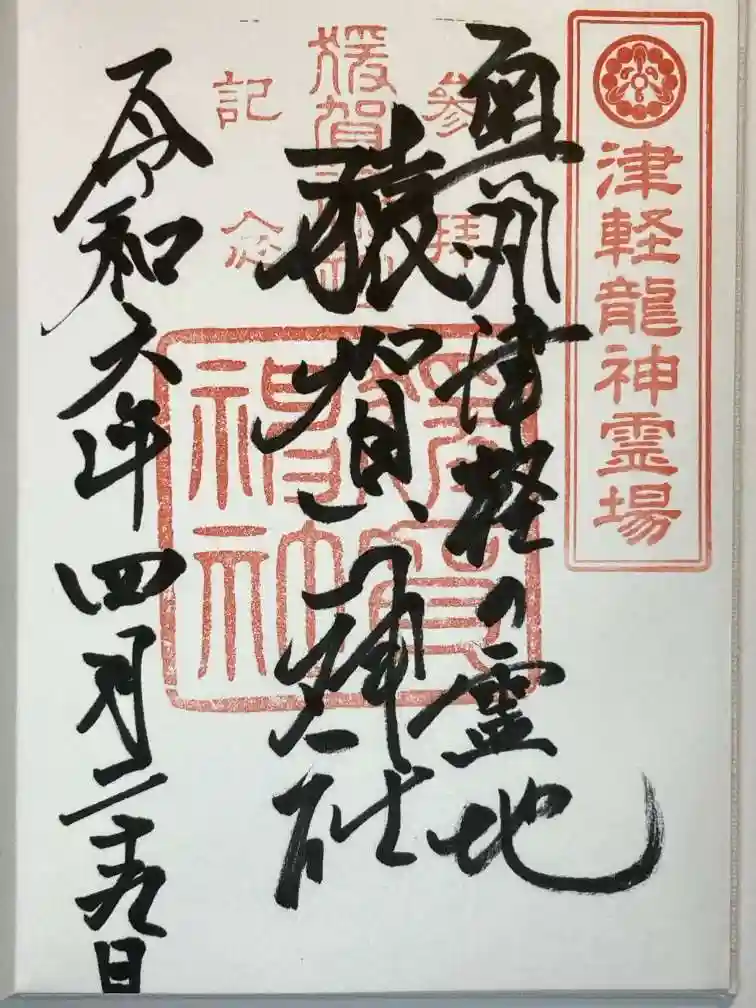 津軽龍神霊場
奥州津軽の霊地
参拝
猿賀神社
記念
令和六年四月二十九日
猿賀神社